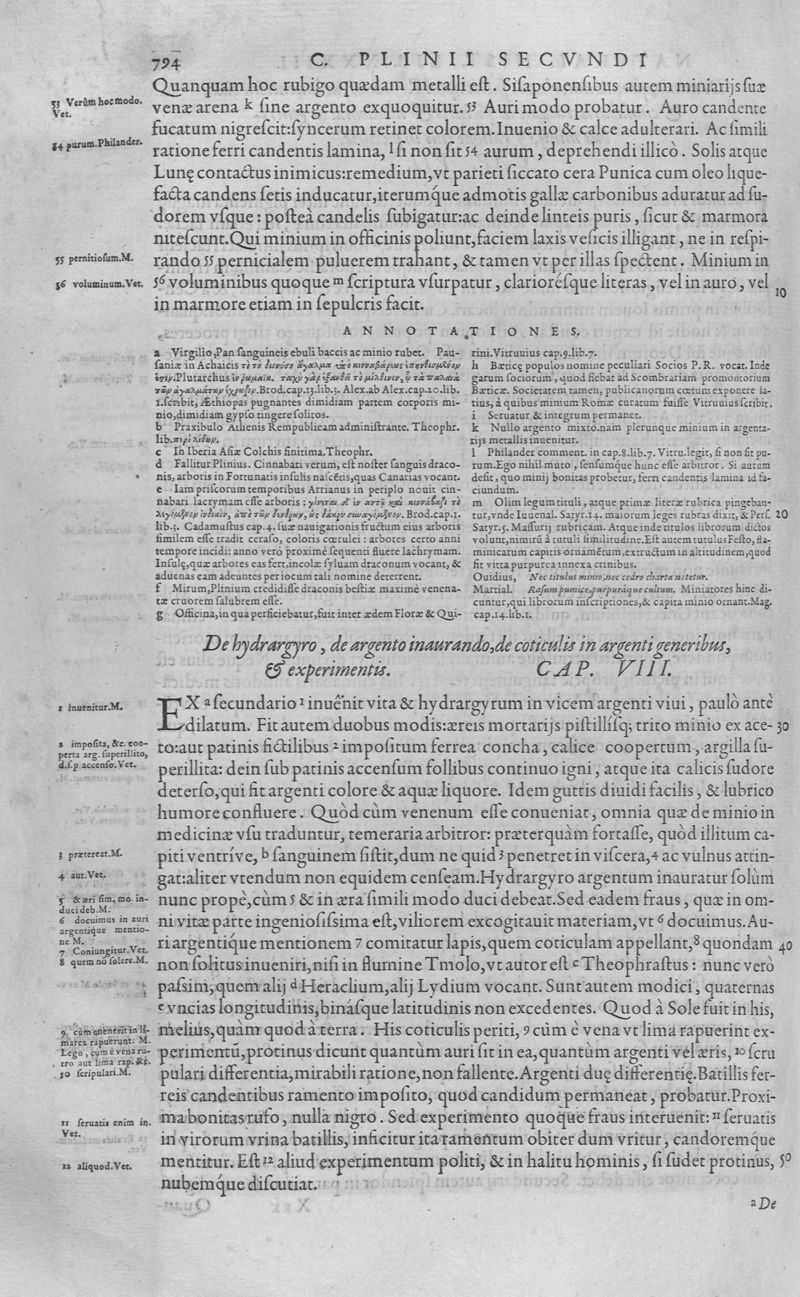 794 C. PLINII SECVNDI
Quanquam hoc rubigo quædam metalli est. Sisaponensibus autem miniarijs suæ
53 Verùm hoc modo.
Vet.
venæ arena k sine argento exquoquitur. 53 Auri modo probatur. Auro candente
fucatum nigrescit: syncerum retinet colorem. Inuenio & calce adulterari. Ac simili
54 purum. Philander.
ratione ferri candentis lamina, l si non sit 54 aurum, deprehendi illicò. Solis atque
Lunę contactus inimicus: remedium, vt parieti siccato cera Punica cum oleo lique-
facta candens setis inducatur, iterumque admotis gallæ carbonibus aduratur ad su-
dorem vsque: posteà candelis subigatur: ac deinde linteis puris, sicut & marmora
nitescunt. Qui minium in officinis poliunt, faciem laxis vesicis illigant, ne in respi-
55 pernitiosum. M.
rando 55 pernicialem puluerem trahant, & tamen vt per illas spectent. Minium in
56 voluminum. Vet.
56 voluminibus quoque m scriptura vsurpatur, clariorésque literas, vel in auro, vel 10
in marmore etiam in sepulcris facit.
ANNOTATIONES.
a Virgilio, Pan sanguineis ebuli baccis ac minio rubet. Pau-
saniæ in Achaicis
Plutarchus
Brod. cap. 13. lib. 5. Alex. ab Alex. cap. 20. lib.
1. scribit, Æthiopas pugnantes dimidiam partem corporis mi-
nio, dimidiam gypso tingere solitos.
b Praxibulo Athenis Rempublicam administrante. Theophr.
lib. περὶ λίθων.
c In Iberia Asiæ Colchis finitima. Theophr.
d Fallitur Plinius. Cinnabari verum, est noster sanguis draco-
nis, arboris in Fortunatis insulis nascẽtis, quas Canarias vocant.
e Iam priscorum temporibus Arrianus in periplo nouit cin-
nabari lacrymam esse arboris:
Brod. cap. 1.
lib. 5. Cadamustus cap. 4. suæ nauigationis fructum eius arboris
similem esse tradit ceraso, coloris cœrulei: arbores certo anni
tempore incidi: anno verò proximè sequenti fluere lachrymam.
Insulę, quæ arbores eas fert, incolæ syluam draconum vocant, &
aduenas eam adeuntes per iocum tali nomine deterrent.
f Mirum, Plinium credidisse draconis bestiæ maximè venena-
tæ cruorem salubrem esse.
g Officina, in qua perficiebatur, fuit inter ædem Floræ & Qui-
rini. Vitruuius cap. 9. lib. 7.
h Bæticę populos nomine peculiari Socios P. R. vocat. Inde
garum sociorum, quod fiebat ad Scombrariam promontorium
Bæticæ. Societatem tamen, publicanorum cœtum exponere la-
tius, à quibus minium Romæ curatum fuisse Vitruuius scribit.
i Seruatur & integrum permanet.
k Nullo argento mixto. nam plerunque minium in argenta-
rijs metallis inuenitur.
l Philander comment. in cap. 8. lib. 7. Vitru. legit, si non sit pu-
rum. Ego nihil muto, sensumque hunc esse arbitror. Si aurum
desit, quo minij bonitas probetur, ferri candentis lamina id fa-
ciundum.
m Olim legum tituli, atque primæ literæ rubrica pingeban-
tur, vnde Iuuenal. Satyr. 14. maiorum leges rubras dixit, & Pers. 20
Satyr. 5. Massurij rubricam. Atque inde titulos librorum dictos
volunt, nimirũ à tutuli similitudine. Est autem tutulus Festo, fla-
minicarum capitis ornamẽtum, extructum in altitudinem, quod
fit vitta purpurea innexa crinibus.
Ouidius, Nec titulus minio, nec cedro charta notetur.
Martial. Rasum pumice, purpuráque cultum. Miniatores hinc di-
cuntur, qui librorum inscriptiones, & capita minio ornant. Mag.
cap. 14. lib. 1.
De hydrargyro, de argento inaurando, de coticulis in argenti generibus,
& experimentis. CAP. VIII.
1 inuenitur. M.
EX a secundario 1 inuênit vita & hydrargyrum in vicem argenti viui, paulò antè
dilatum. Fit autem duobus modis: æreis mortarijs pistillísq; trito minio ex ace- 30
2 imposita, &c. coo-
perta arg. superillito,
d. s. p. accenso. Vet.
to: aut patinis fictilibus 2 impositum ferrea concha, calice coopertum, argilla su-
perillita: dein sub patinis accensum follibus continuo igni, atque ita calicis sudore
deterso, qui fit argenti colore & aquæ liquore. Idem guttis diuidi facilis, & lubrico
humore confluere. Quòd cùm venenum esse conueniat, omnia quæ de minio in
medicinæ vsu traduntur, temeraria arbitror: præterquàm fortasse, quòd illitum ca-
3 prætereat. M.
piti ventríve, b sanguinem sistit, dum ne quid 3 penetret in viscera, 4 ac vulnus attin-
4 aut. Vet.
gat: aliter vtendum non equidem censeam. Hydrargyro argentum inauratur solùm
5 & æri sim. mo. in-
duci deb. M.
nunc propè, cùm 5 & in æra simili modo duci debeat. Sed eadem fraus, quæ in om-
6 docuimus in auri
argentique mentio-
ne M.
ni vitæ parte ingeniosissima est, viliorem excogitauit materiam, vt 6 docuimus. Au-
7 Coniungitur. Vet.
ri argentique mentionem 7 comitatur lapis, quem coticulam appellant, 8 quondam 40
8 quem nõ solere. M.
non solitus inueniri, nisi in flumine Tmolo, vt autor est c Theophrastus: nunc verò
passim, quem alij d Heraclium, alij Lydium vocant. Sunt autem modici, quaternas
e vncias longitudinis, binásque latitudinis non excedentes. Quod à Sole fuit in his,
melius, quàm quod à terra. His coticulis periti, 9 cùm è vena vt lima rapuerint ex-
9 cùm
rapuerunt. M.
Lego, cum è vena ru-
tro aut lima rap. &c.
perimentũ, protinus dicunt quantùm auri sit in ea, quantùm argenti vel æris, 10 scru
10 scripulari. M.
pulari differentia, mirabili ratione, non fallente. Argenti duę differentię. Batillis fer-
reis candentibus ramento imposito, quod candidum permaneat, probatur. Proxi-
11 seruatis enim in.
Vet.
ma bonitas rufo, nulla nigro. Sed experimento quoque fraus interuenit: 11 seruatis
in virorum vrina batillis, inficitur ita ramentum obiter dum vritur, candoremque
12 aliquod. Vet.
mentitur. Est 12 aliud experimentum politi, & in halitu hominis, si sudet protinus, 50
nubemque discutiat.
a De